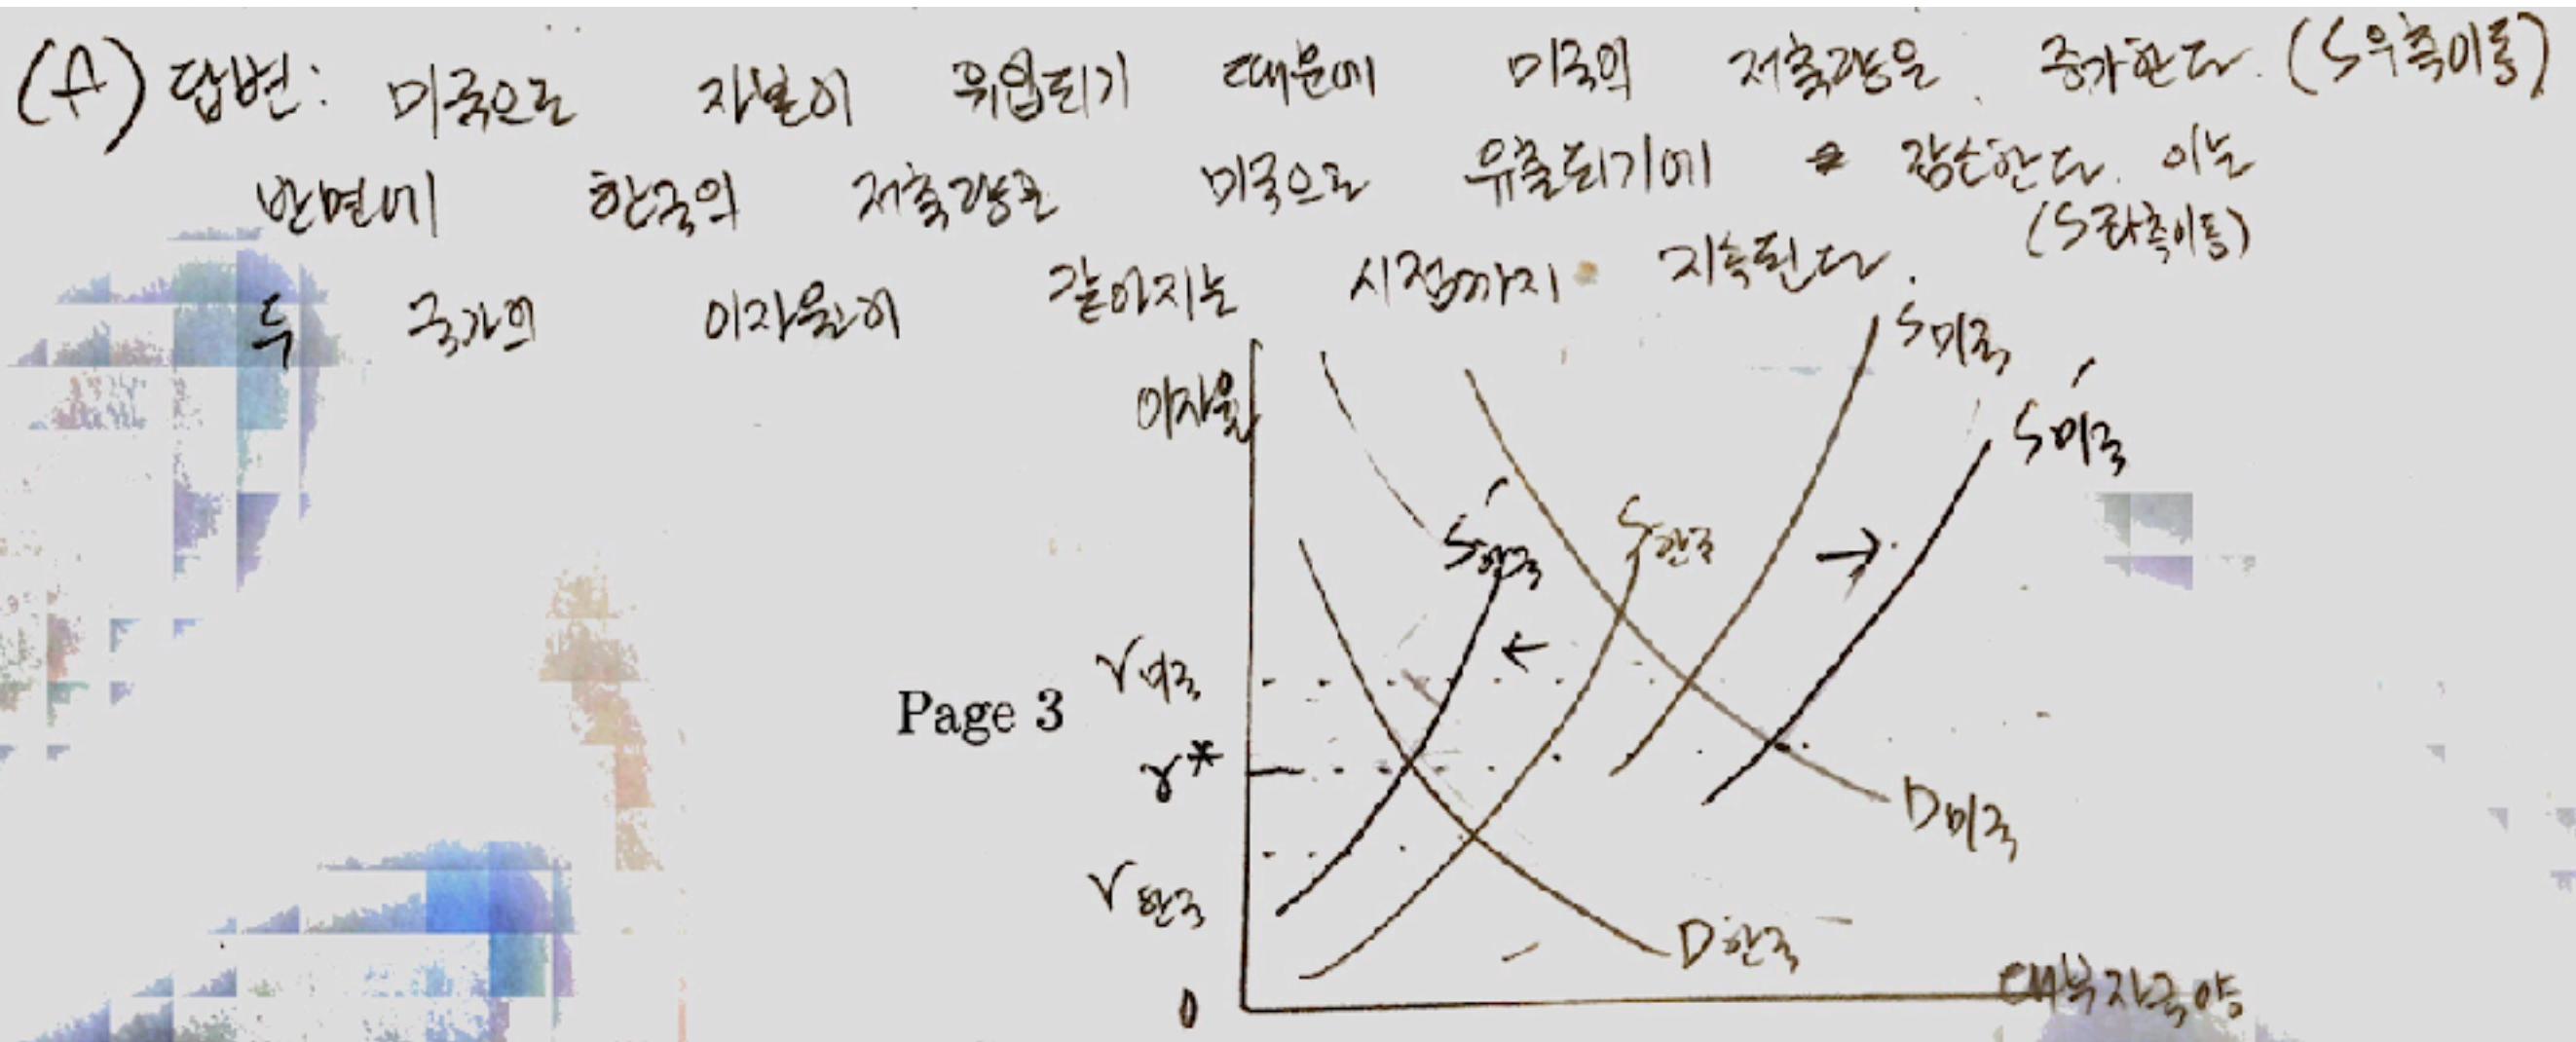 (A) 답변: 미국으로 자본이 유입되기 때문에 미국의 저축량은 증가한다. (S우측이동)
반면에 한국의 저축량은 미국으로 유출되기에 감소한다. 이는
(S좌측이동)
두 국가의 이자율이 같아지는 시점까지 지속된다.
이자율
S미국
S미국′
S한국′
S한국
r미국
Page 3
r*
r한국
D미국
D한국
0
대부자금양